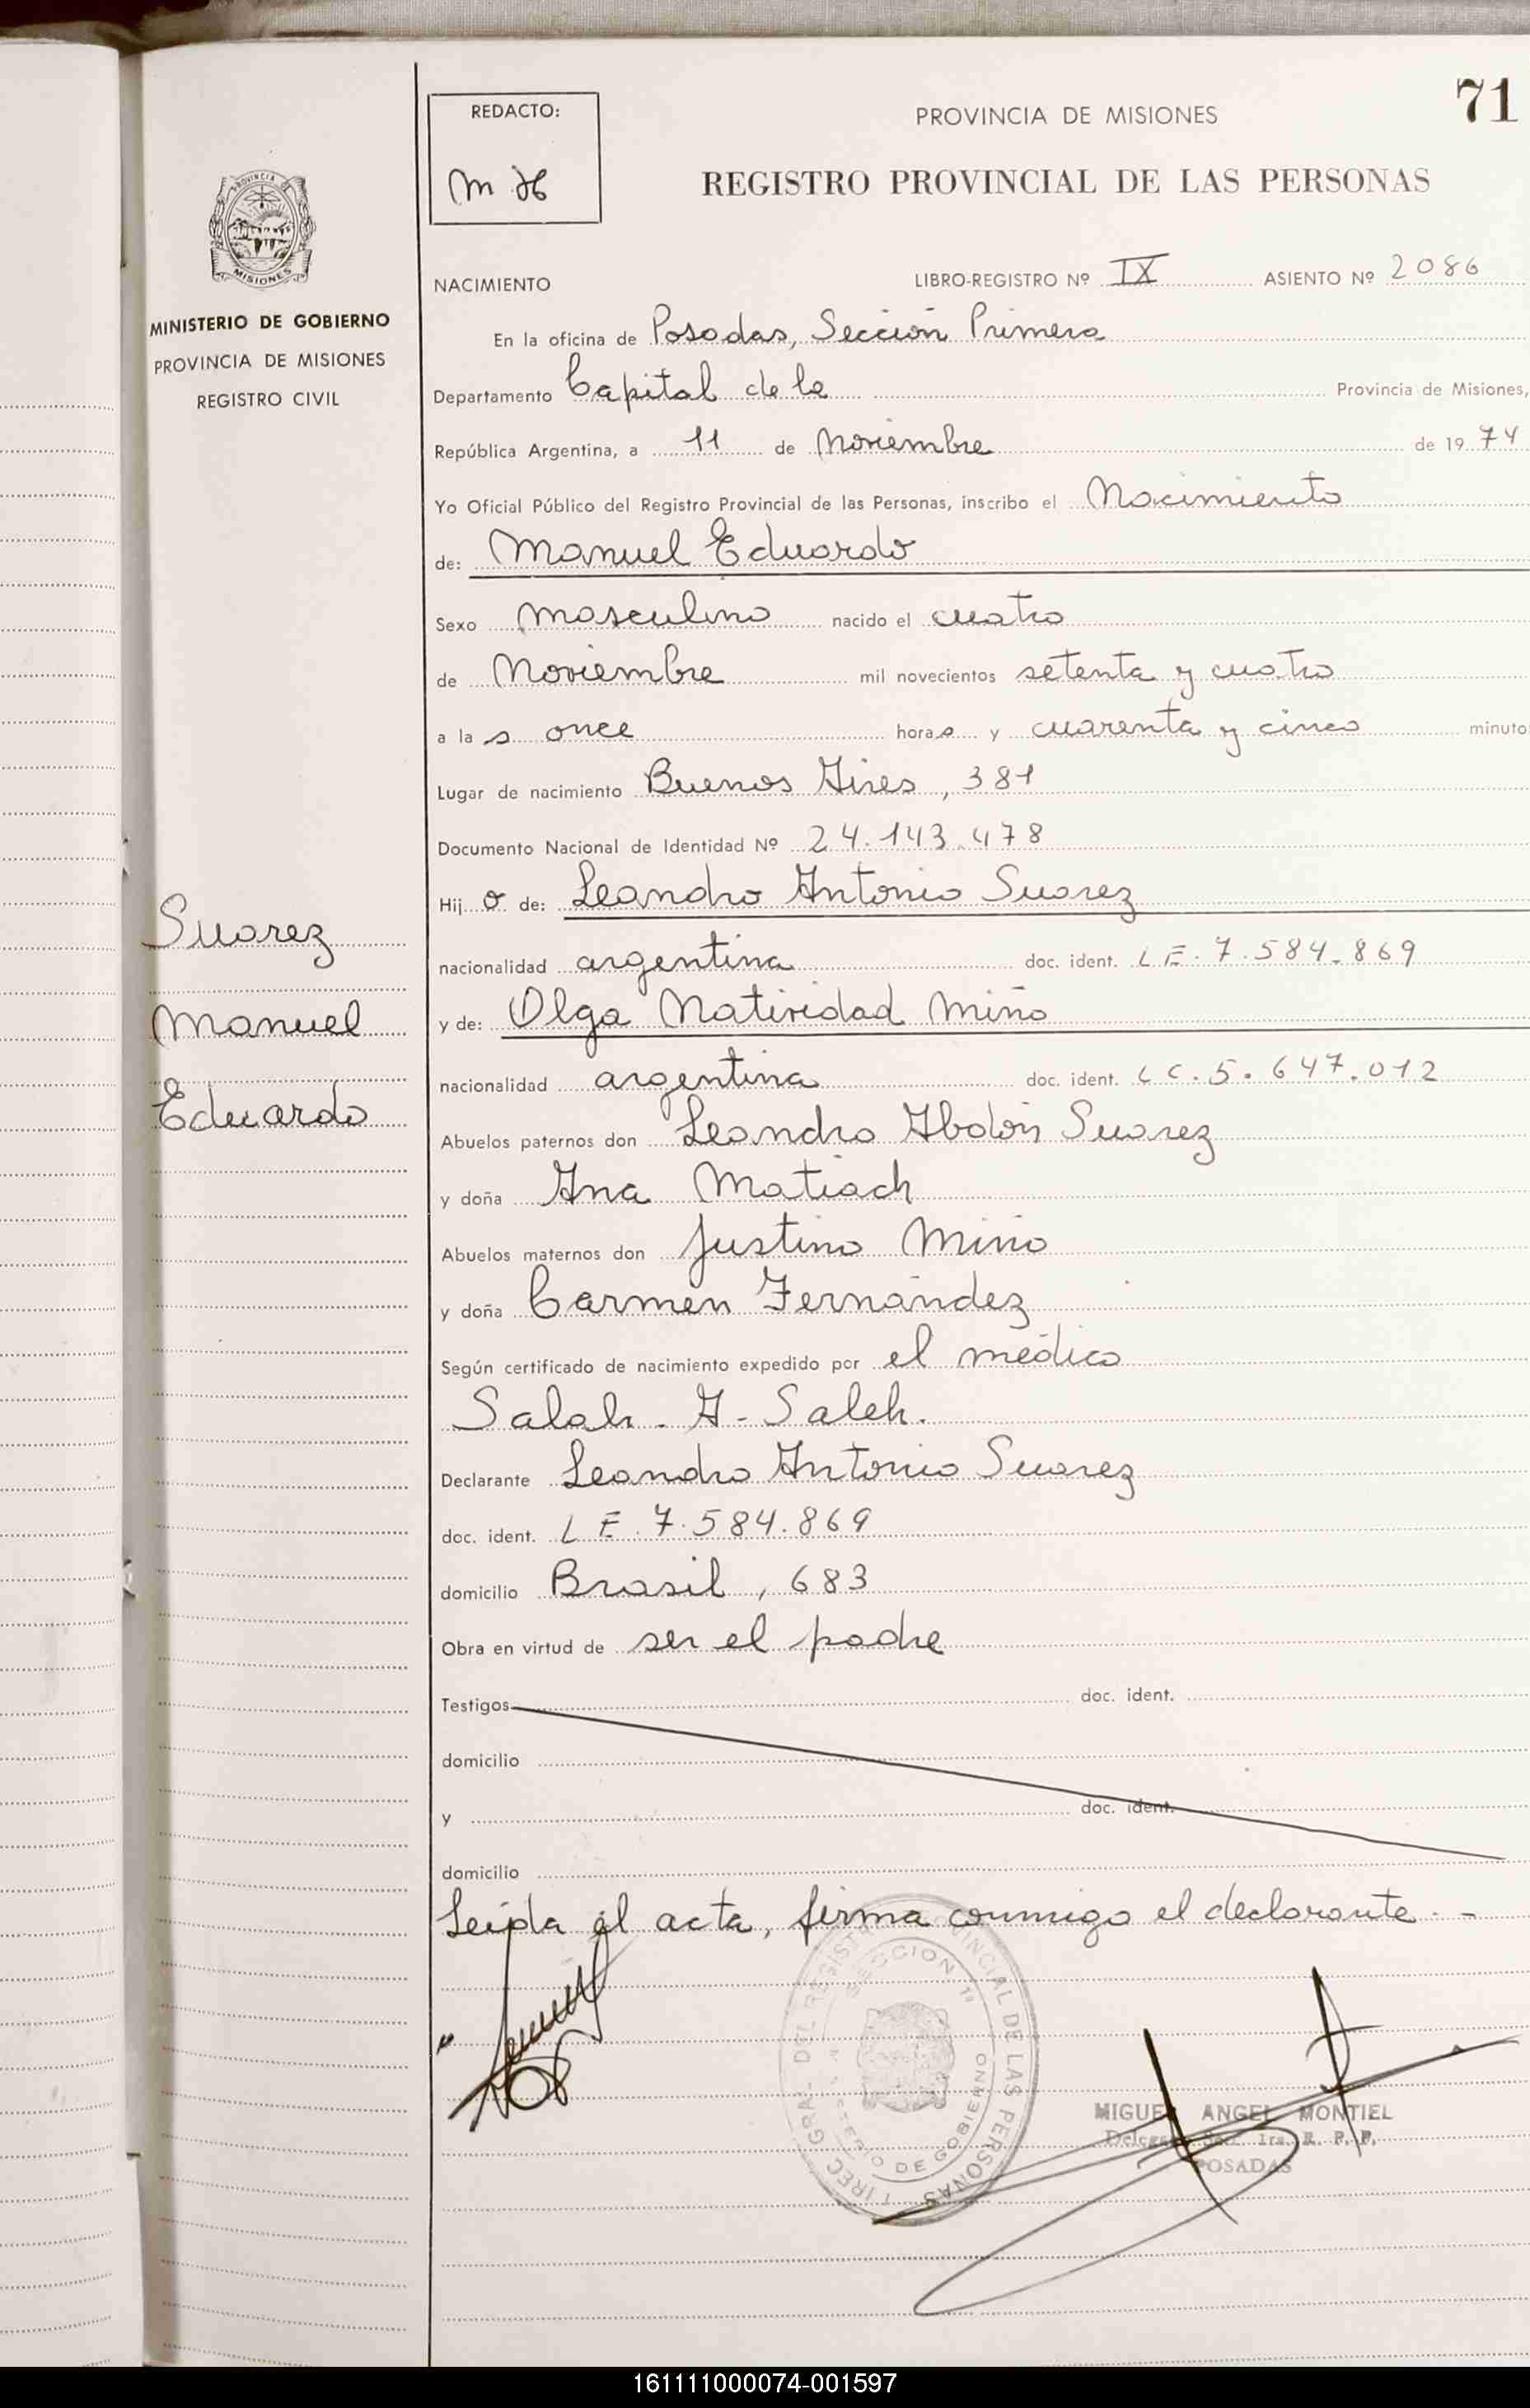 71
REDACTO:
PROVINCIA DE MISIONES
REGISTRO PROVINCIAL DE LAS PERSONAS
PROVINCIA
MISIONES
MINISTERIO DE GOBIERNO
PROVINCIA DE MISIONES
REGISTRO CIVIL
NACIMIENTO LIBRO-REGISTRO Nº IX ASIENTO Nº 2086
En la oficina de Posadas, Sección Primera
Departamento Capital de la Provincia de Misiones,
República Argentina, a 11 de Noviembre de 1974
Yo Oficial Público del Registro Provincial de las Personas, inscribo el Nacimiento
de: Manuel Eduardo
Sexo masculino nacido el cuatro
de Noviembre mil novecientos setenta y cuatro
a las once horas y cuarenta y cinco minuto
Lugar de nacimiento Buenos Aires, 381
Documento Nacional de Identidad Nº 24.143.478
Hijo de: Leandro Antonio Suarez
nacionalidad argentina doc. ident. L E. 7.584.869
y de: Olga Natividad Miño
nacionalidad argentina doc. ident. L C. 5.647.012
Abuelos paternos don Leandro Abdón Suarez
y doña Ana Matiach
Abuelos maternos don Justino Miño
y doña Carmen Fernández
Según certificado de nacimiento expedido por el médico
Salah. A. Saleh.
Declarante Leandro Antonio Suarez
doc. ident. L E. 7.584.869
domicilio Brasil, 683
Obra en virtud de ser el padre
Testigos doc. ident.
domicilio
y doc. ident.
domicilio
Leída el acta, firma conmigo el declarante. -
Suarez
Manuel
Eduardo
SECCION 1ª
DE LAS PERSONAS
DE GOBIERNO
MIGUEL ANGEL MONTIEL
POSADAS
161111000074-001597